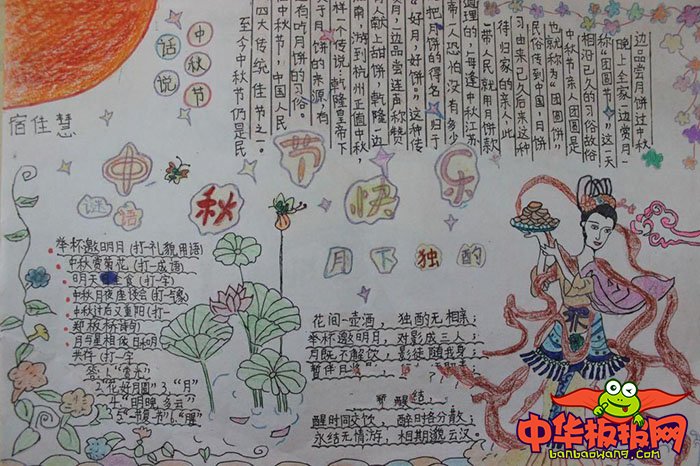 中秋节
话说
宿佳慧
至今中秋节仍是民
四大传统佳节之一。
中秋节，中国人民
有吃月饼的习俗。
月饼的来源，有
样一个传说，乾隆皇帝下
南，游到杭州正值中秋，
献上甜饼，乾隆一边
边品尝连声称赞
“好月，好饼。”这种传
把月饼的得名，归于
帝一人恐怕没有多少
道理的，每逢中秋江苏
带人民就用月饼款
待归家的亲人，此
习由来已久后来这种
民俗传到中国，月饼
也就称为“团圆饼”
中秋节亲人团圆是
相沿已久的习俗故俗
称“团圆节”这一天
晚上全家一边赏月一
边品尝月饼过中秋
中秋节快乐
谜语
举杯邀明月(打一礼貌用语)
中秋赏菊花(打一成语)
明天全食(打一字)
中秋月夜座谈会(打一
中秋过后又重阳(打一
郑板桥诗句
月与星相依日和
共存(打一字
答:1“赏光”
2“花好月圆”3“月”
4“明晚多云”
5“一节复一节”6“腥”
月下独酌
花间一壶酒，独酌无相亲；
举杯邀明月，对影成三人；
月既不解饮，影徒随我身；
暂伴月
醒时同交饮，醉时各分散；
永结无情游，相期邈云汉。
中华板报网
banbaowang.com